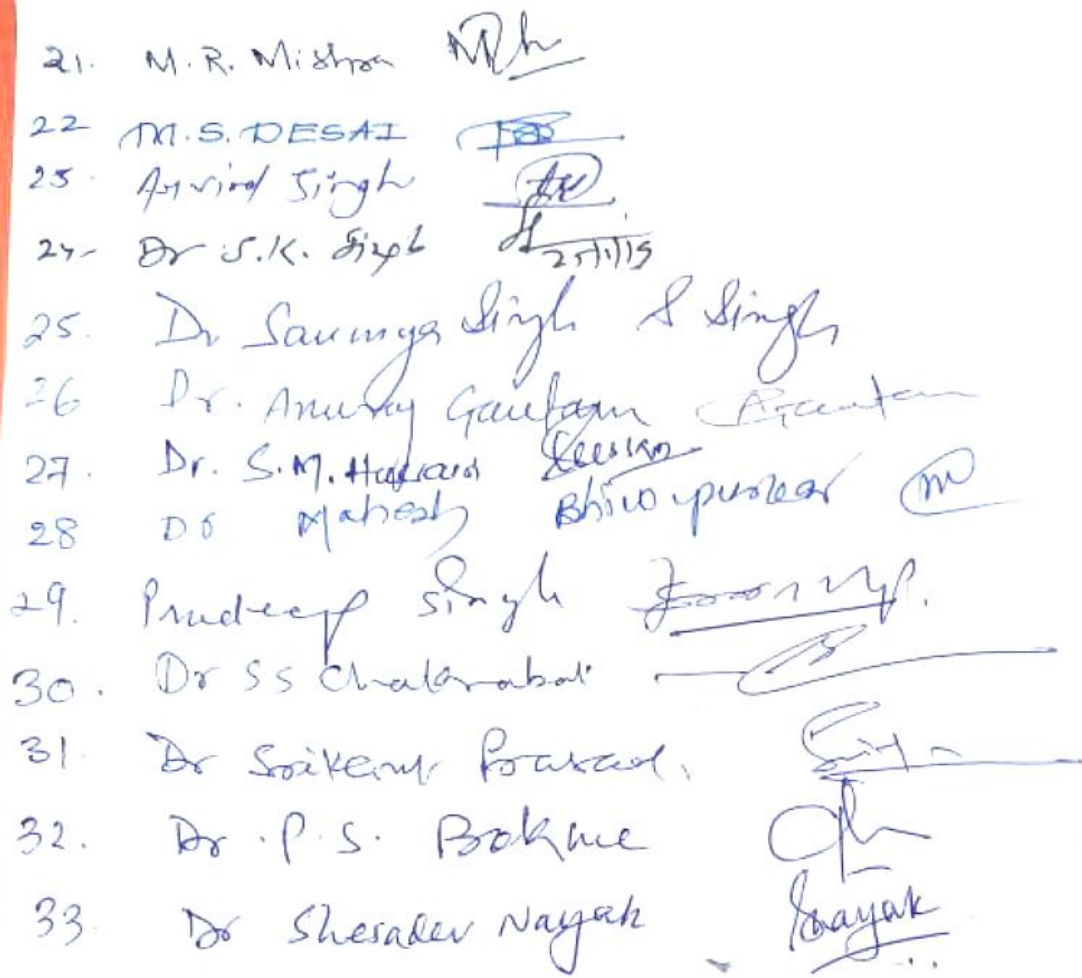 21. M.R. Mishra
22 M.S. DESAI
23. Arvind Singh
24- Dr S.K. Singh 25/1/19
25. Dr Saumya Singh S Singh
26 Dr. Anurag Gautam AGautam
27. Dr. S.M. Hussain
28 Dr Mahesh Bhiwapurkar m
29. Pradeep Singh
30. Dr SS Chakrabati
31. Dr Prasad.
32. Dr. P.S. Bokare
33. Dr Nayak Nayak